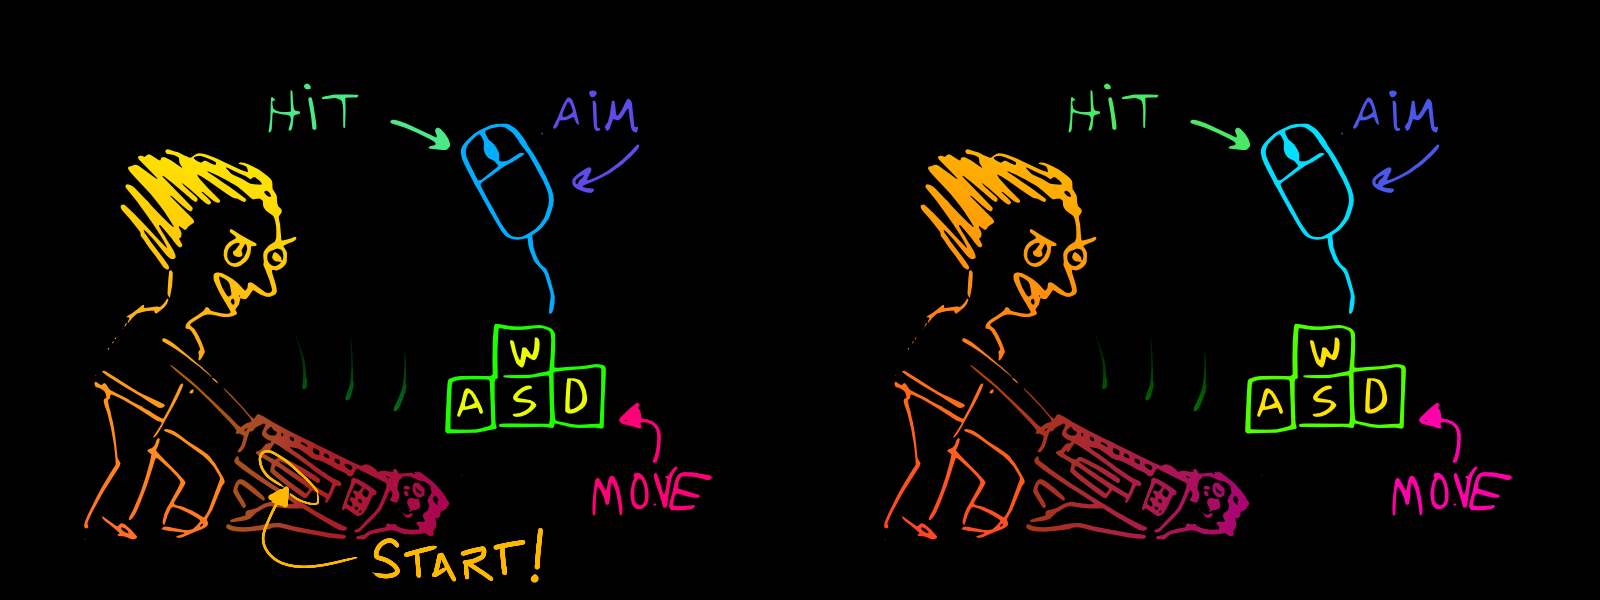 HiT
AiM
W
A S D
MOVE
START!
HiT
AiM
W
A S D
MOVE